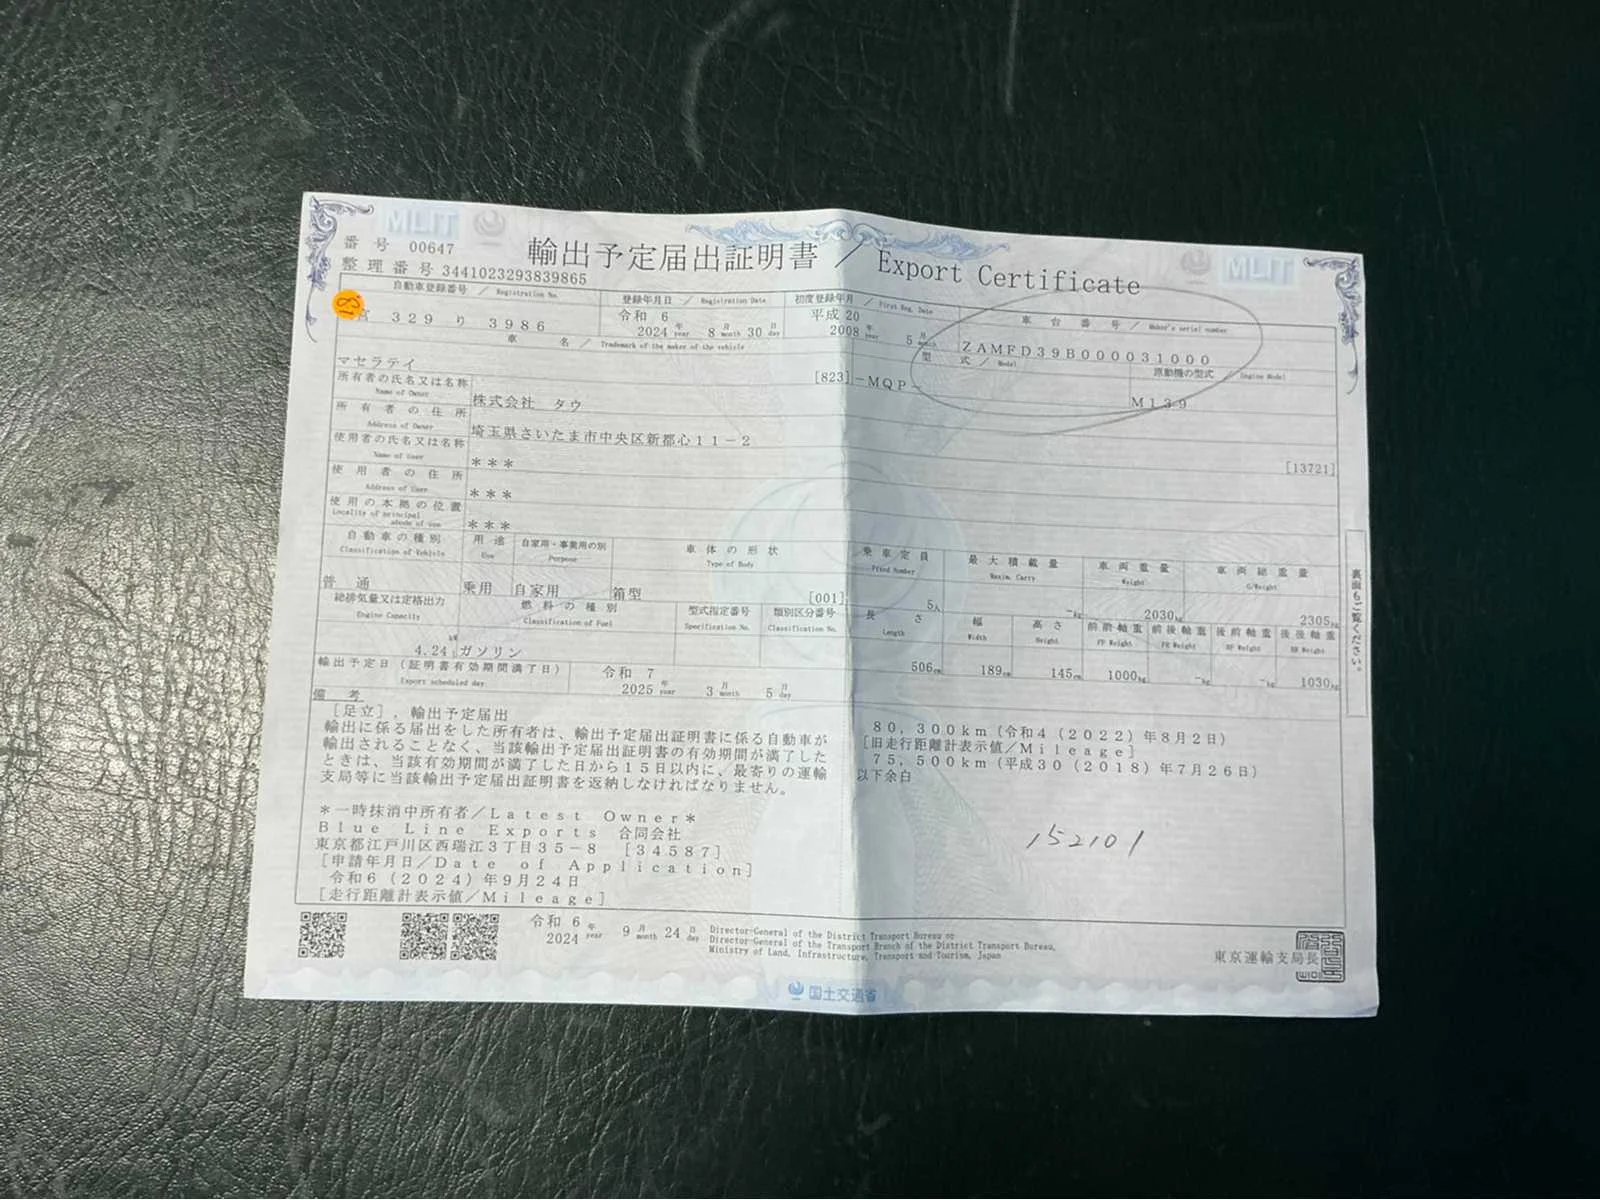 MLIT
MLIT
番号 00647
輸出予定届出証明書 / Export Certificate
整理番号 3441023293839865
自動車登録番号 / Registration No.
登録年月日 / Registration Date
初度登録年月 / First Reg. Date
車台番号 / Maker's serial number
宮 329 り 3986
令和 6
2024 年 year 8 月 month 30 日 day
平成 20
2008 年 year 5 月 month
ZAMFD39B000031000
車名 / Trademark of the maker of the vehicle
型式 / Model
原動機の型式 / Engine Model
マセラテイ
[823]
-MQP-
M139
所有者の氏名又は名称
Name of Owner
株式会社 タウ
所有者の住所
Address of Owner
埼玉県さいたま市中央区新都心11-2
[13721]
使用者の氏名又は名称
Name of User
***
使用者の住所
Address of User
***
使用の本拠の位置
Locality of principal
abode of use
***
自動車の種別
Classification of Vehicle
用途
Use
自家用・事業用の別
Purpose
車体の形状
Type of Body
乗車定員
Fixed Number
最大積載量
Maxim. Carry
車両重量
Weight
車両総重量
G/Weight
普通
乗用
自家用
箱型
[001]
5人
-kg
2030kg
2305kg
総排気量又は定格出力
Engine Capacity
燃料の種別
Classification of Fuel
型式指定番号
Specification No.
類別区分番号
Classification No.
長さ
Length
幅
Width
高さ
Height
前前軸重
FF Weight
前後軸重
FR Weight
後前軸重
RF Weight
後後軸重
RR Weight
kW
4.24
ガソリン
506cm
189cm
145cm
1000kg
-kg
-kg
1030kg
輸出予定日 (証明書有効期間満了日)
Export scheduled day
令和 7
2025 年 year 3 月 month 5 日 day
備考
[足立], 輸出予定届出
輸出に係る届出をした所有者は、輸出予定届出証明書に係る自動車が
輸出されることなく、当該輸出予定届出証明書の有効期間が満了した
ときは、当該有効期間が満了した日から15日以内に、最寄りの運輸
支局等に当該輸出予定届出証明書を返納しなければなりません。
*一時抹消中所有者/Latest Owner*
Blue Line Exports 合同会社
東京都江戸川区西瑞江3丁目35-8 [34587]
[申請年月日/Date of Application]
令和6(2024)年9月24日
[走行距離計表示値/Mileage]
80,300km(令和4(2022)年8月2日)
[旧走行距離計表示値/Mileage]
75,500km(平成30(2018)年7月26日)
以下余白
152101
裏面もご覧ください。
令和 6
2024 年 year 9 月 month 24 日 day
Director-General of the District Transport Bureau or
Director-General of the Transport Branch of the District Transport Bureau,
Ministry of Land, Infrastructure, Transport and Tourism, Japan
東京運輸支局長
国土交通省